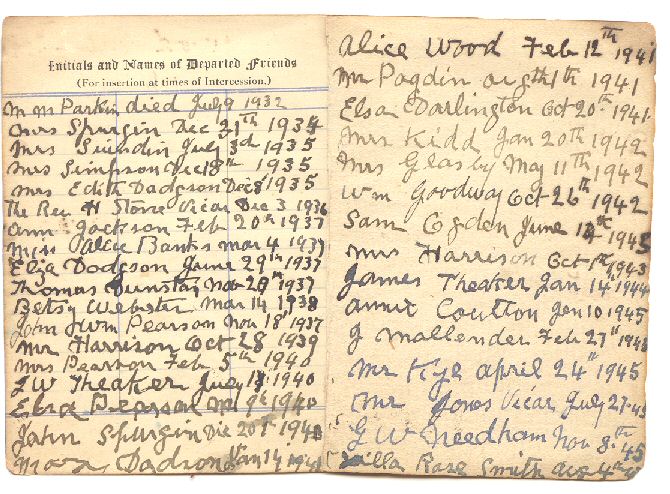 Initials and Names of Departed Friends
(For insertion at times of Intercession.)
M M Parkin died July 9 1932
Mrs Spurgin Dec 31th 1934
Mrs Sundin July 3d 1935
Mrs Simpson Dec 18th 1935
Mrs Edith Dadgson Dec 8 1935
The Rev H Storre Vicar Dec 3 1936
Ann Jackson Feb 20th 1937
Miss Alice Banks Mar 4 1937
Elza Dodgson June 29th 1937
Thomas Dunstan Nov 20th 1937
Betsy Webster Mar 14 1938
John Wm Pearson Nov 18th 1937
Mr Harrison Oct 28 1939
Mrs Pearson Feb 5th 1940
J W Theaker July 1940
9th 1940
John Spurgin Dec 20th 1940
Dadson Jan 14 1941
Alice Wood Feb 12th 1941
Mr Pogdin 1941
Elsa Darlington Oct 20th 1941
Mrs Kidd Jan 20th 1942
Mrs Glasby May 11th 1942
Wm Goodway Oct 26th 1942
Sam Ogden June 1943
Mrs Harrison Oct 1st 1943
James Theaker Jan 14 1944
Annie Coulton Jen 10 1945
J Mallender Feb 27th
Mr Kye April 24th 1945
Mr Jones Vicar July 27-45
G W Needham Nov 8th 45
Rose Smith 4th